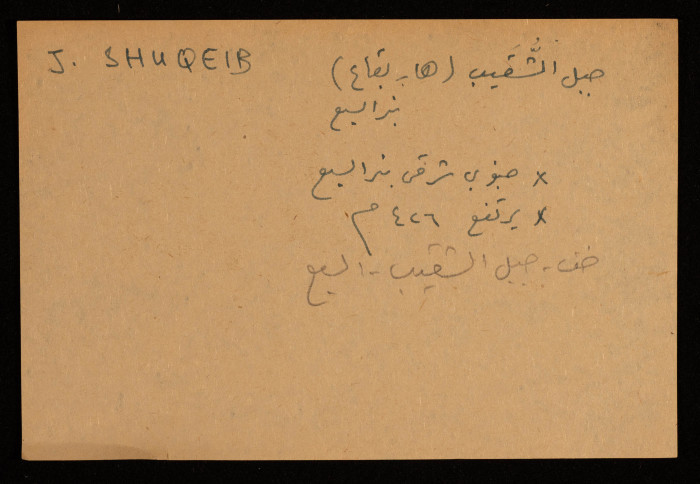 J. SHUQEIB
جبل الشُّقَيب (هار بقاع)
بئر السبع
x جنوبي شرقي بئر السبع
x يرتفع ٤٢٦ م.
خف - جبل الشقيب - السبع